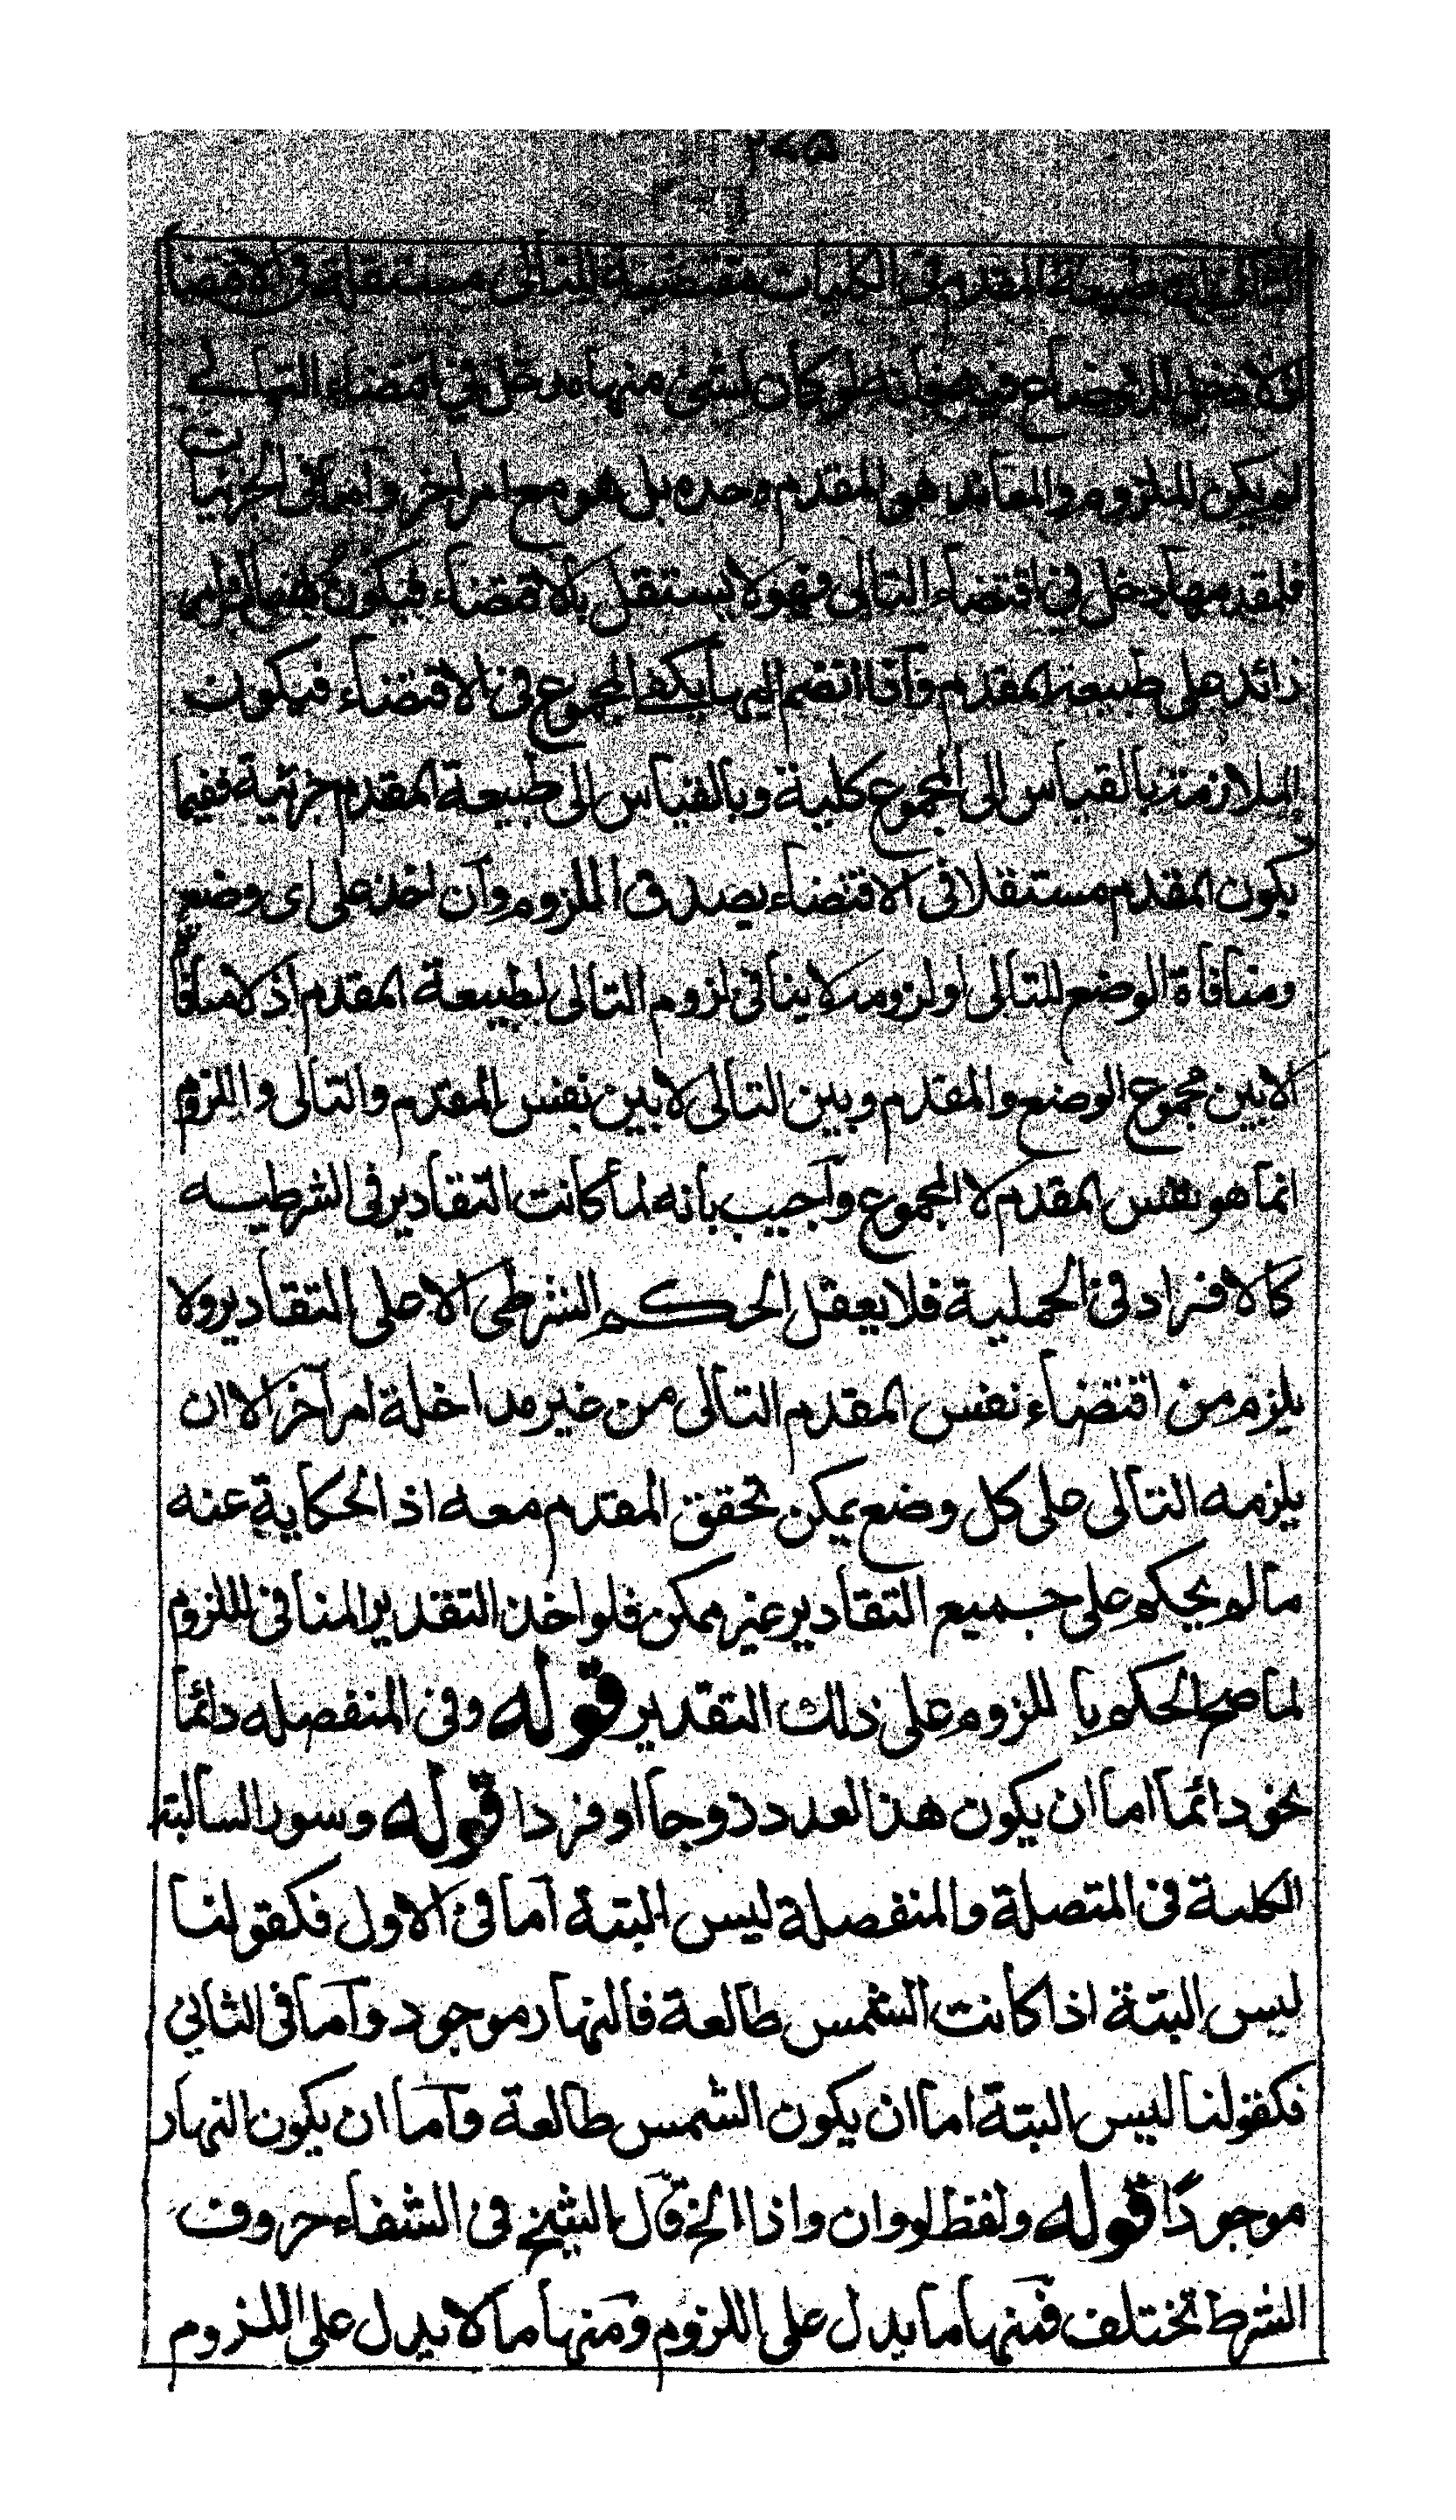 ٢٤٥
التالى فان طبيعة المقدم فى الكليات مقتضية للتالى مستقلة فى الاقتضا
اذ لا دخل للاوضاع فيه فانه لو كان لشئ منها مدخل فى اقتضاء التالے
لم يكن الملزوم والمعاند هو المقدم وحده بل هو مع امر اخر واما فى الجزئيات
فلمقدمها دخل فى اقتضاء التالى فهو لا يستقل بالاقتضاء فيكون هناك امر
زائد على طبيعة المقدم وآذا انضم اليها يكفى المجموع فى الاقتضاء فيكون
الملازمة بالقياس الى المجموع كلية وبالقياس الى طبيعة المقدم جزئية ففيما
يكون المقدم مستقلا فى الاقتضاء يصدق الملزوم وآن اخذ على اى وضع
ومنافاة الوضع للتالى او لزومه لا ينافى لزوم التالى لطبيعة المقدم اذ لا منافاة
الا بين مجموع الوضع والمقدم وبين التالى لا بين نفس المقدم والتالى والملزوم
انما هو نفس المقدم لا المجموع وآجيب بانه لما كانت التقادير فى الشرطيه
كالافراد فى الحملية فلا يعقل الحكم الشرطى الا على التقادير ولا
يلزم من اقتضاء نفس المقدم التالى من غير مداخلة امر آخر الا ان
يلزمه التالى على كل وضع يمكن تحقق المقدم معه اذ الحكاية عنه
مالم يحكم على جميع التقادير غير ممكن فلو اخذ التقدير المنافى للملزوم
لما صح الحكم با للزوم على ذلك التقدير قوله وفى المنفصله دائما
نحو دائما اما ان يكون هذا العدد زوجا او فردا قوله وسور السالبة
الكلية فى المتصلة والمنفصلة ليس البتة آما فى الاول فكقولنا
ليس البتة اذا كانت الشمس طالعة فالنهار موجود وآما فى الثانى
فكقولنا ليس البتة اما ان يكون الشمس طالعة وآما ان يكون النهار
موجودًا قوله ولفظ لو وان واذا الخ قال الشيخ فى الشفاء حروف
الشرط تختلف فمنها ما يدل على اللزوم ومنها مالا يدل على اللزوم